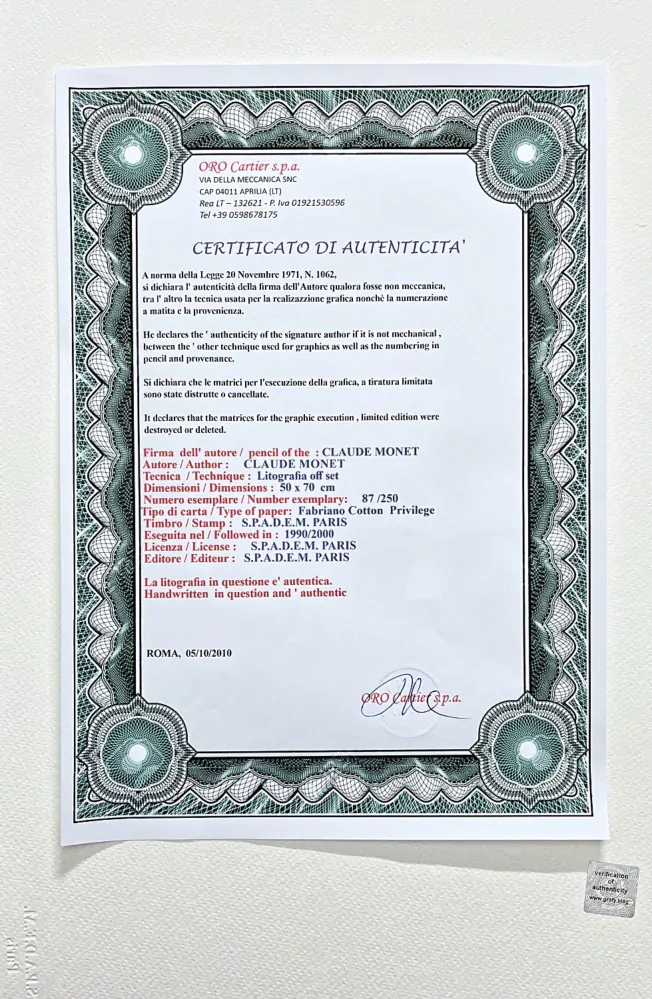 ORO Cartier s.p.a.
VIA DELLA MECCANICA SNC
CAP 04011 APRILIA (LT)
Rea LT – 132621 - P. Iva 01921530596
Tel +39 0598678175
CERTIFICATO DI AUTENTICITA'
A norma della Legge 20 Novembre 1971, N. 1062,
si dichiara l' autenticità della firma dell'Autore qualora fosse non meccanica,
tra l' altro la tecnica usata per la realizazzione grafica nonchè la numerazione
a matita e la provenienza.
He declares the ' authenticity of the signature author if it is not mechanical ,
between the ' other technique used for graphics as well as the numbering in
pencil and provenance.
Si dichiara che le matrici per l'esecuzione della grafica, a tiratura limitata
sono state distrutte o cancellate.
It declares that the matrices for the graphic execution , limited edition were
destroyed or deleted.
Firma dell' autore / pencil of the : CLAUDE MONET
Autore / Author : CLAUDE MONET
Tecnica / Technique : Litografia off set
Dimensioni / Dimensions : 50 x 70 cm
Numero esemplare / Number exemplary: 87 /250
Tipo di carta / Type of paper: Fabriano Cotton Privilege
Timbro / Stamp : S.P.A.D.E.M. PARIS
Eseguita nel / Followed in : 1990/2000
Licenza / License : S.P.A.D.E.M. PARIS
Editore / Editeur : S.P.A.D.E.M. PARIS
La litografia in questione e' autentica.
Handwritten in question and ' authentic
ROMA, 05/10/2010
ORO Cartier s.p.a.
verification
of
authenticity
www.grafy.blog
S.P.A.D.E.M.
Paris